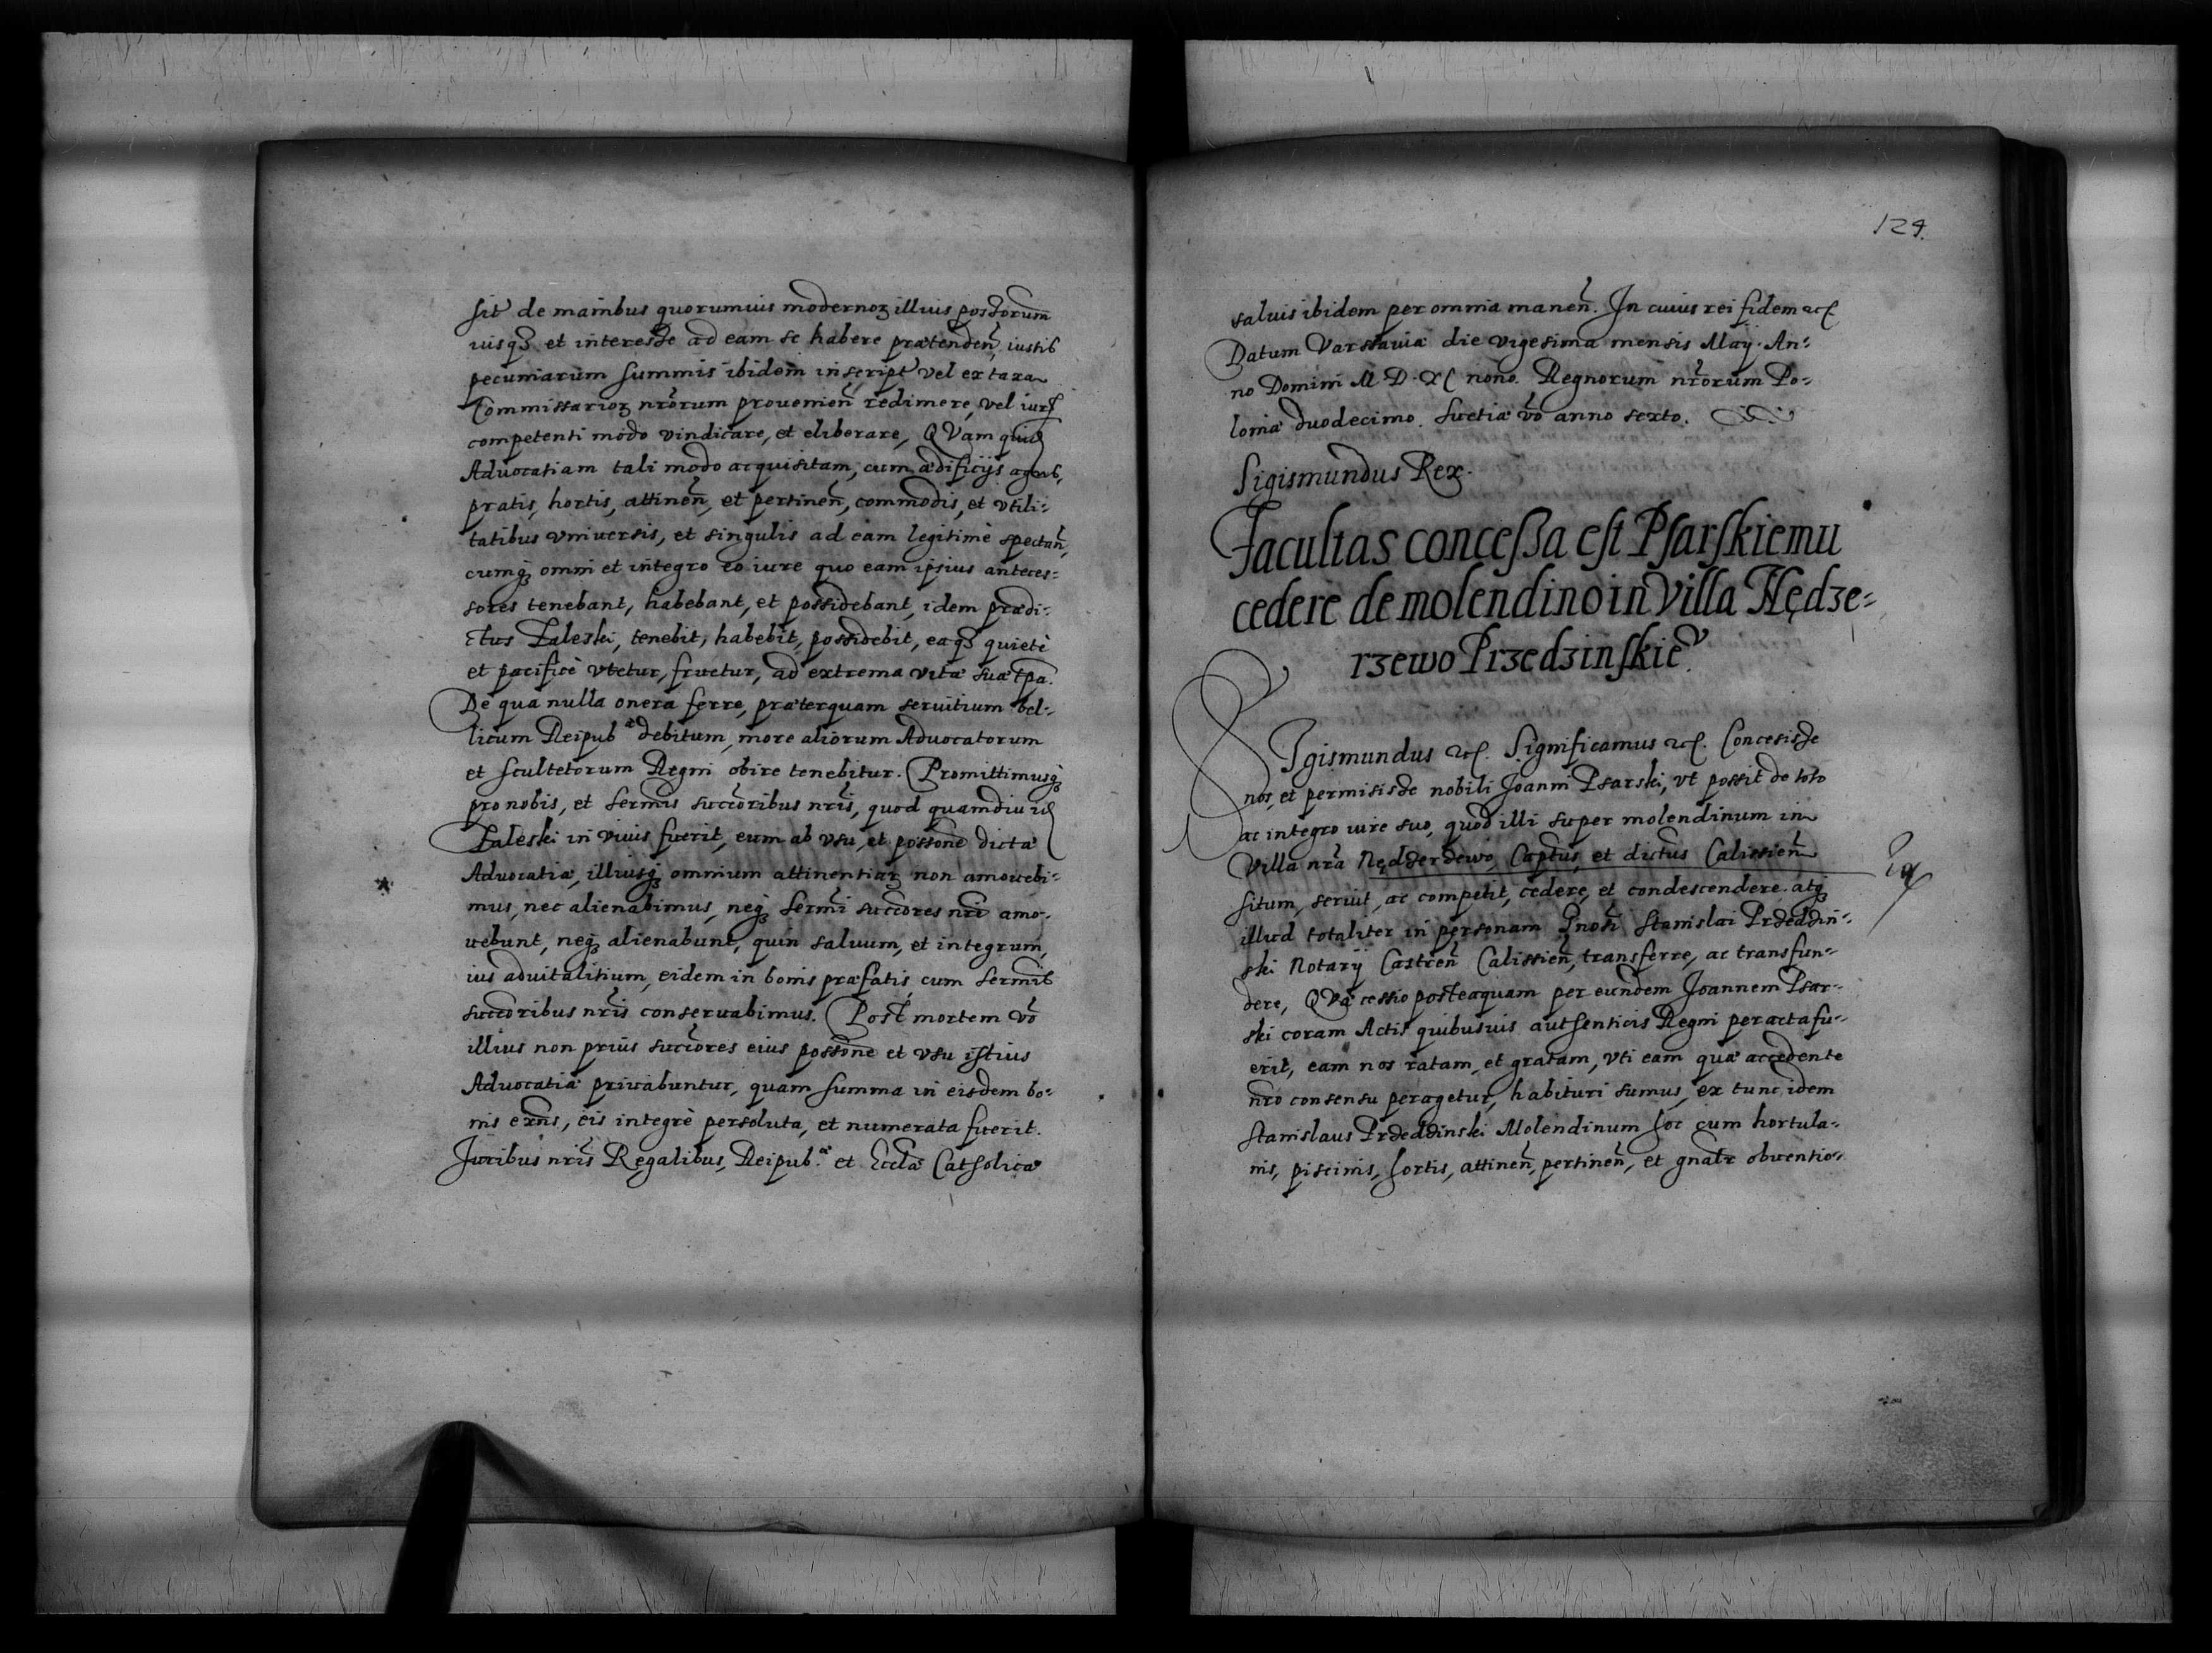 sit de manibus quorumuis modernoꝝ illius possorum
iusqꝫ et interesse ad eam se habere prætenden̄, iustis
pecuniarum summis ibidem inscript vel ex taxa
Commissarioꝝ nr̄orum prouenien̄ redimere, vel iurꝭ
competenti modo vindicare, et eliberare, QVam quid
Aduocatiam tali modo acquisitam, cum ædificijs agris,
pratis, hortis, attinen̄, et pertinen̄, commodis, et vtili-
tatibus vniuersis, et singulis ad eam legitimè spectan̄,
cumqꝫ omni et integro eo iure quo eam ipsius anteces-
sores tenebant, habebant, et possidebant, idem prædi-
ctus Zaleski, tenebit, habebit, possidebit, eaqꝫ quietè
et pacificè vtetur, fruetur, ad extrema vitæ suæ tp̄a.
De qua nulla onera ferre, præterquam seruitium bel-
licum Reipub.æ debitum, more aliorum Aduocatorum
et scultetorum Regni obire tenebitur. Promittimusqꝫ
pro nobis, et Sermis succōribus nrīs, quod quamdiu id
Zaleski in viuis fuerit, eum ab vsu, et possōne dictæ
Aduocatiæ, illiusqꝫ omnium attinentiaꝝ non amouebi-
mus, nec alienabimus, neqꝫ Sermi succōres nrī amo-
uebunt, neqꝫ alienabunt, quin saluum, et integrum,
ius aduitalitium, eidem in bonis præfatis, cum Sermis
succōribus nrīs conseruabimus. Post mortem vō
illius non prius succōres eius possōne et vsu istius
Aduocatiæ priuabuntur, quam summa in eisdem bo-
nis exn̄s, eis integrè persoluta, et numerata fuerit.
Juribus nrīs Regalibus, Reipub.æ et Eccl̄æ Catholicæ
124.
saluis ibidem per omnia manen̄. In cuius rei fidem ꝛcꝭ
Datum Varsauiæ die vigesima mensis Maij. An-
no Domini M D XC nono. Regnorum nr̄orum Po-
loniæ duodecimo. Suetiæ vō anno sexto.
Sigismundus Rex.
Facultas concessa est Psarskiemu
cedere de molendino in Villa Nędze-
rzewo Przedzinskie
SIgismundus ꝛcꝭ. Significamus ꝛcꝭ. Concesisse
nos, et permisisse nobili Joanni Psarski, vt possit de toto
ac integro iure suo, quod illi super molendinum in
Villa nr̄a Nędzerzewo, Captus, et dictus Calissien̄
situm, seruit, ac competit, cedere, et condescendere. atqꝫ
illud totaliter in personam Gnosi Stanislai Przedzin-
ski Notarij Castren̄ Calissien̄, transferre, ac transfun-
dere, QVæ cessio posteaquam per eundem Joannem Psar-
ski coram Actis quibusuis authenticis Regni peracta fu-
erit, eam nos ratam, et gratam, vti eam quæ accedente
nr̄o consensu peragetur, habituri sumus, ex tunc idem
Stanislaus Przedzinski Molendinum hoc cum hortula-
nis, piscinis, hortis, attinen̄, pertinen̄, et gnal̄r obuentio-